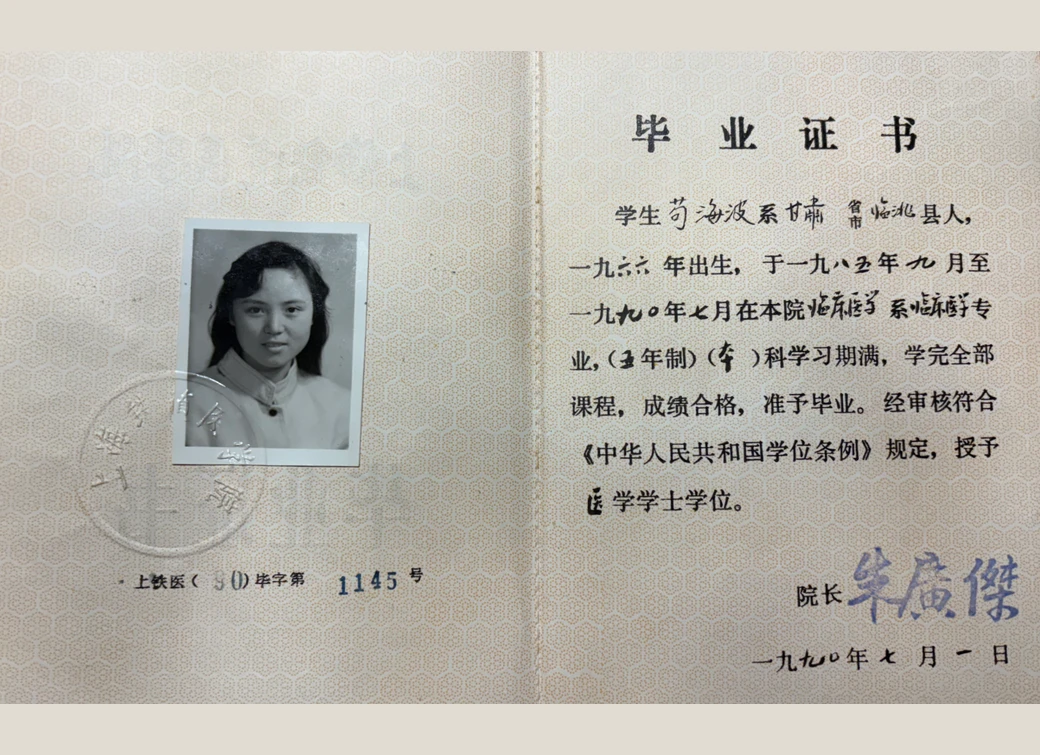 上铁医(90)毕字第 1145 号
毕业证书
学生苟海波系甘肃 省市 临洮县人,
一九六六年出生, 于一九八五年九月至
一九九〇年七月在本院临床医学系临床医学专
业,(五年制)(本 )科学习期满, 学完全部
课程, 成绩合格, 准予毕业。经审核符合
《中华人民共和国学位条例》规定, 授予
医学学士学位。
院长 朱廣傑
一九九〇年七月一日